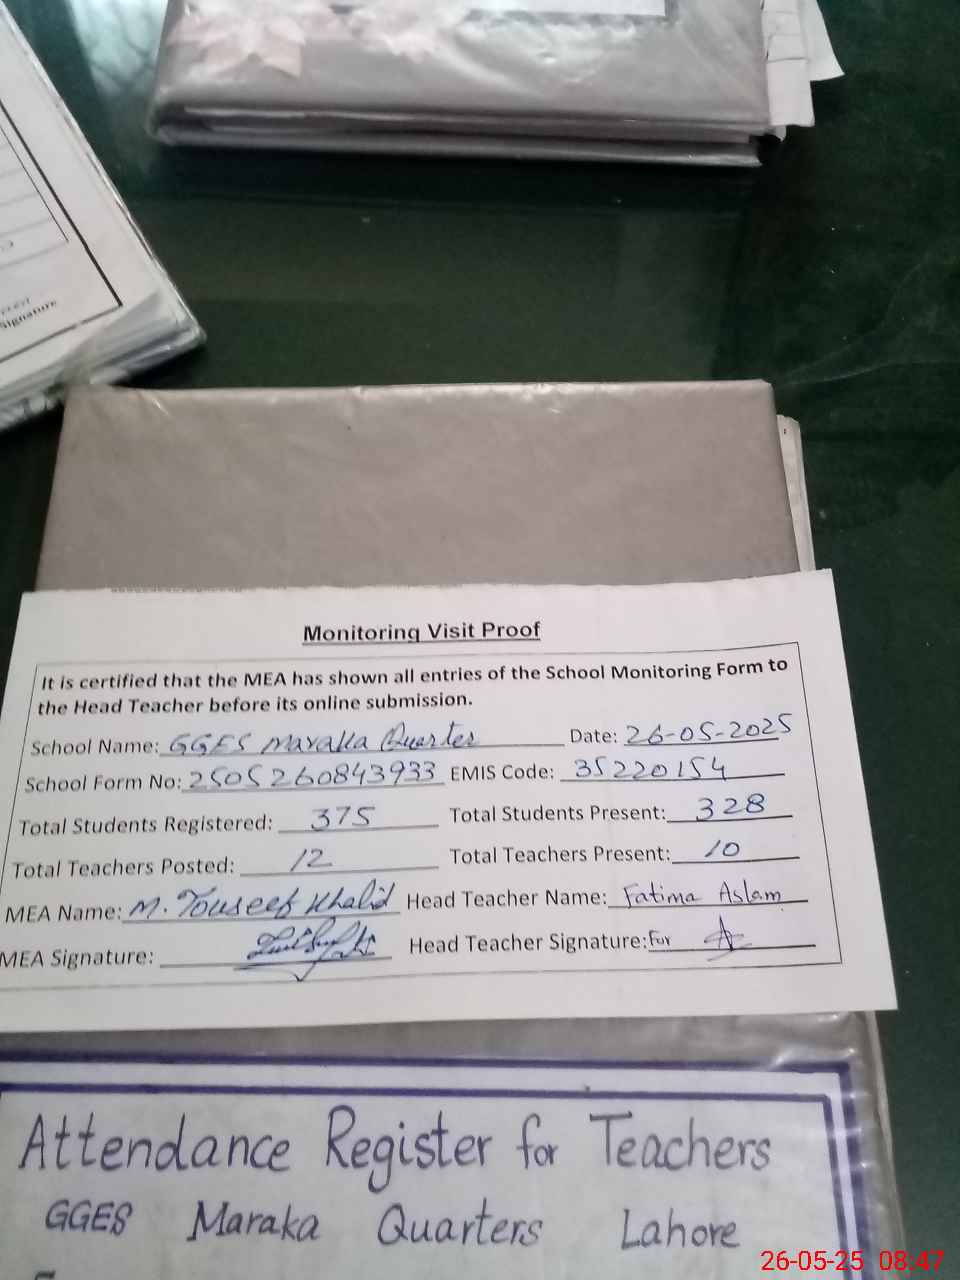 Signature
Monitoring Visit Proof
It is certified that the MEA has shown all entries of the School Monitoring Form to
the Head Teacher before its online submission.
School Name: GGES Maraka Quarter Date: 26-05-2025
School Form No: 2505260843933 EMIS Code: 35220154
Total Students Registered: 375 Total Students Present: 328
Total Teachers Posted: 12 Total Teachers Present: 10
MEA Name: M. Touseef Khalid Head Teacher Name: Fatima Aslam
MEA Signature: Head Teacher Signature: For
Attendance Register for Teachers
GGES Maraka Quarters Lahore
26-05-25 08:47